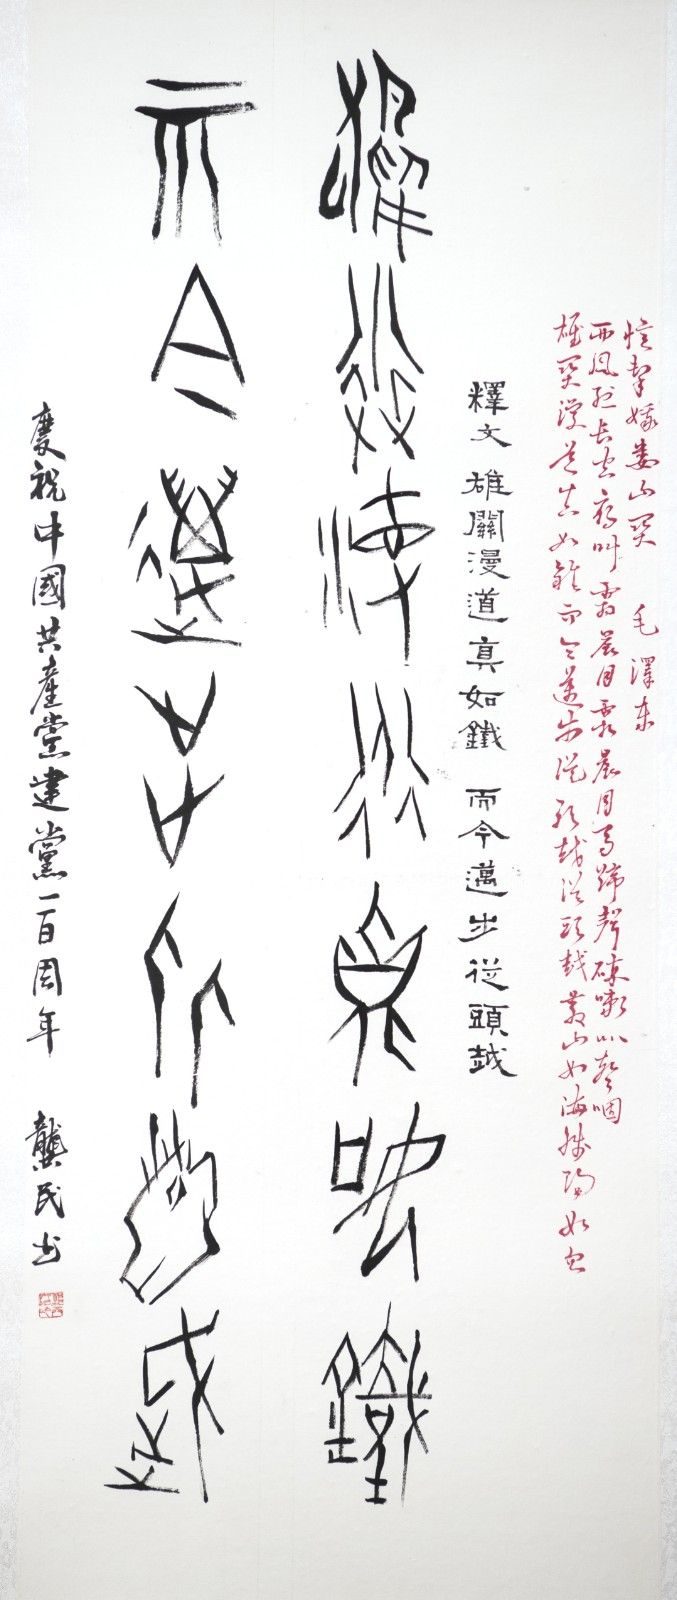 憶秦娥婁山関 毛澤東
西風烈長空雁叫霜晨月霜晨月馬蹄聲碎喇叭聲咽
雄関漫道真如鐵而今邁步從頭越從頭越蒼山如海殘陽如血
釋文 雄關漫道真如鐵 而今邁步從頭越
雄關漫道真如鐵
而今邁步從頭越
慶祝中國共產黨建黨一百周年 龔民书